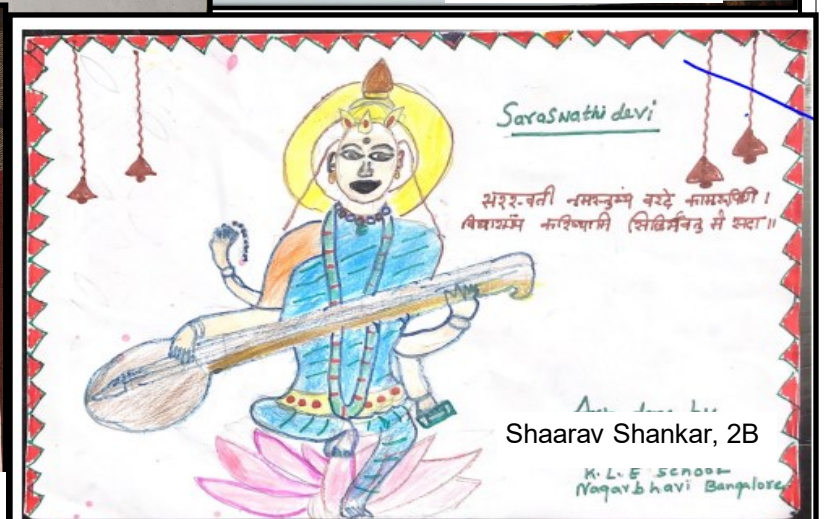 Saraswathi devi
सरस्वती नमस्तुभ्यं वरदे कामरूपिणी ।
विद्यारंभं करिष्यामि सिद्धिर्भवतु मे सदा ॥
Shaarav Shankar, 2B
K. L. E SCHOOL
Nagarbhavi Bangalore